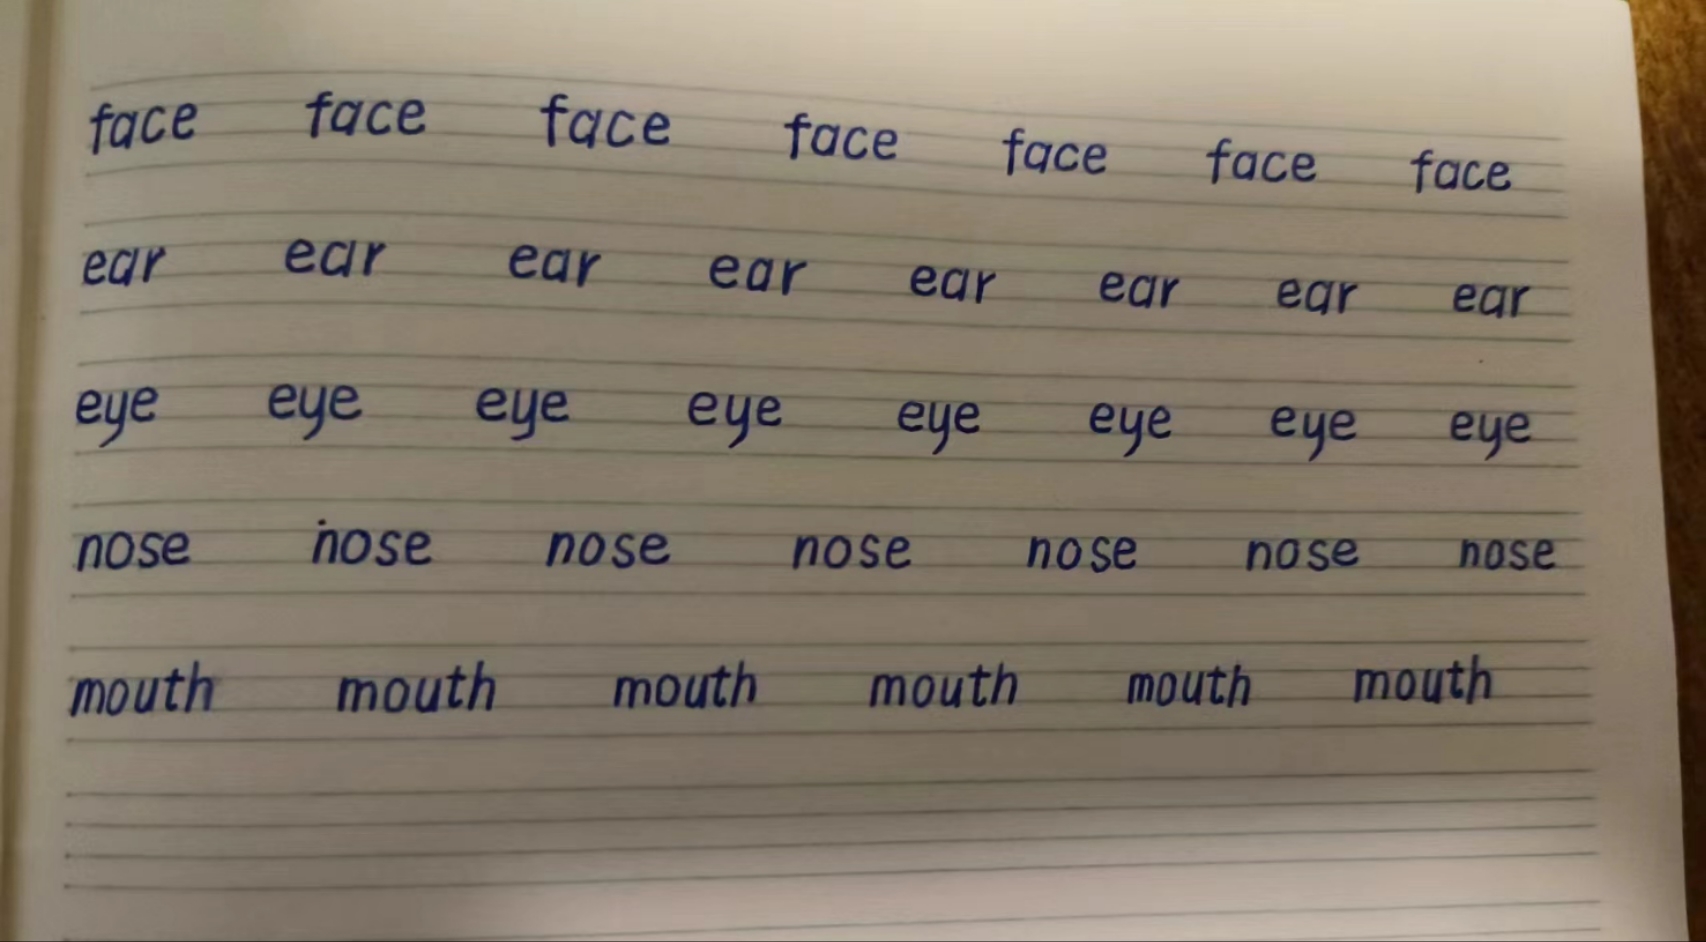 face face face face face face face
ear ear ear ear ear ear ear ear
eye eye eye eye eye eye eye eye
nose nose nose nose nose nose nose
mouth mouth mouth mouth mouth mouth